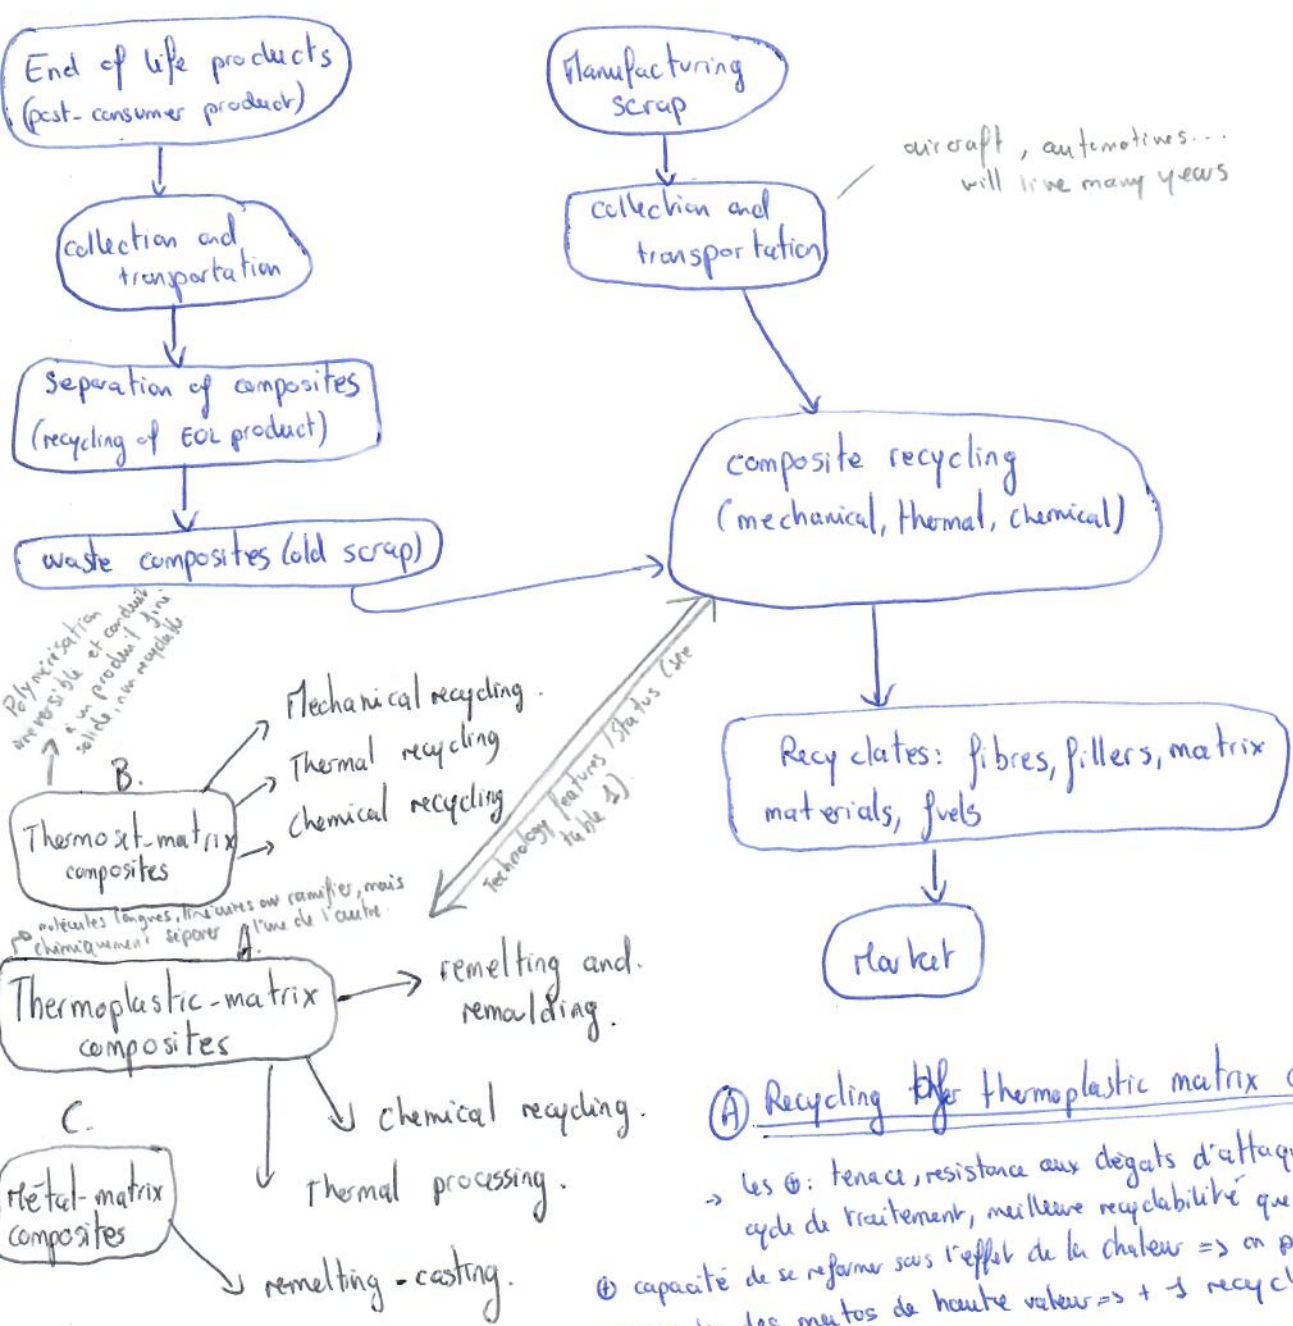 End of life products
(post-consumer product)
collection and
transportation
Separation of composites
(recycling of EOL product)
waste composites (old scrap)
Manufacturing
scrap
collection and
transportation
aircraft, automotives...
will live many years
composite recycling
(mechanical, thermal, chemical)
Recyclates: fibres, fillers, matrix
materials, fuels
Market
Technology features / Status (see
table 1)
Polymérisation
irréversible et conduit
à un produit fini
solide, non recyclable.
B.
Thermoset-matrix
composites
Mechanical recycling.
Thermal recycling
Chemical recycling
molécules longues, linéaires ou ramifier, mais
chimiquement séparer l'une de l'autre.
A.
Thermoplastic-matrix
composites
remelting and
remoulding.
Chemical recycling.
Thermal processing.
C.
Métal-matrix
composites
remelting-casting.
A Recycling thermoplastic matrix c
→ les ⊕: tenace, resistance aux dégats d'attaq
cycle de traitement, meilleure recyclabilité que
⊕ capacité de se reformer sous l'effet de la chaleur => on p
des matos de haute valeur => + 1 recycl